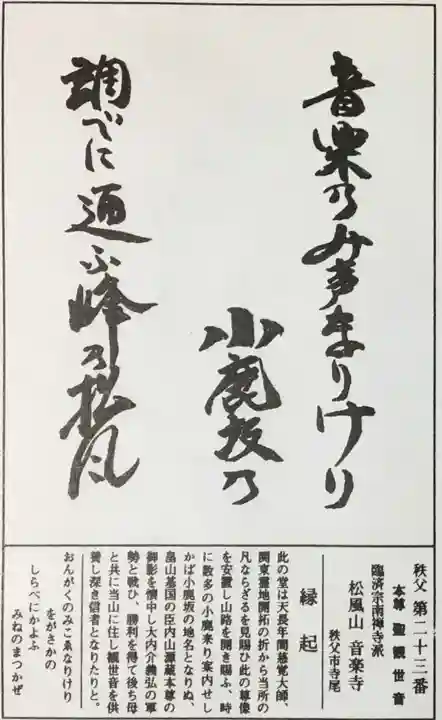 音楽のみ声なりけり
小鹿坂の
調べに通ふ峰の松風
秩父 第二十三番
本尊 聖観世音
臨済宗南禅寺派
松風山 音楽寺
秩父市寺尾
縁起
此の堂は天長年間慈覚大師、
関東霊地開拓の折から当所の
凡ならざるを見賜ひ此の尊像
を安置し山路を開き賜ふ、時
に数多の小鹿来り案内せし
かば小鹿坂の地名となりぬ、
畠山基国の臣内山源蔵本尊の
御影を懐中し大内介義弘の軍
勢と戦ひ、勝利を得て後ち母
と共に当山に住し観世音を供
養し深き信者となりたりと。
おんがくのみこゑなりけり
をがさかの
しらべにかよふ
みねのまつかぜ